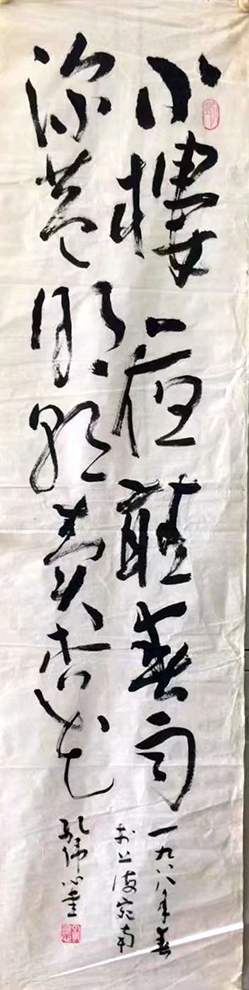 小樓一夜聽春雨
深巷明朝賣杏花
一九八八年春
於上海宛南